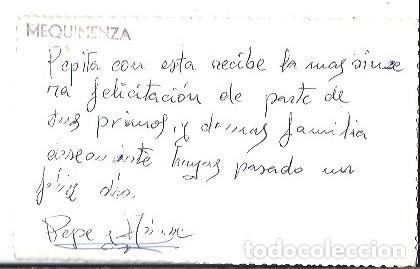 MEQUINENZA
Pepita con esta recibe la mas since
ra felicitación de parte de
tus primos, y demas familia
hayas pasado un
feliz dia.
Pepe y
todocoleccion